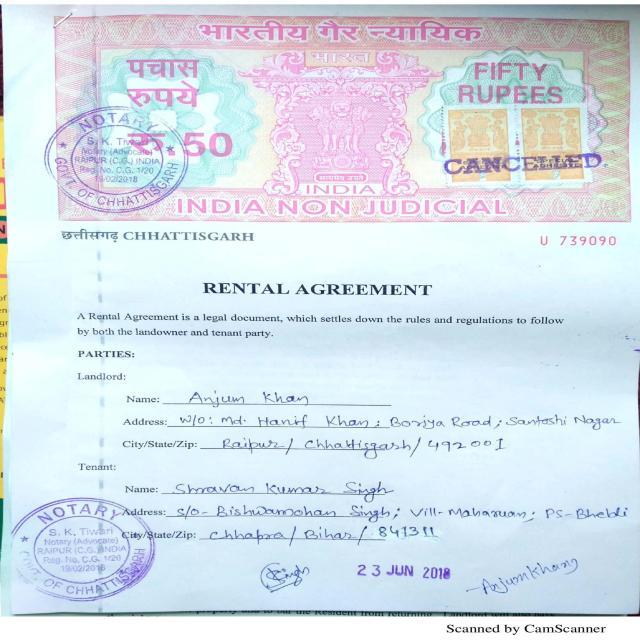 भारतीय गैर न्यायिक
भारत
पचास
रुपये
रु.50
FIFTY
RUPEES
CANCELLED
सत्यमेव जयते
INDIA
INDIA NON JUDICIAL
NOTARY
S. K. Tiwari
Notary (Advocate)
RAIPUR (C.G.) INDIA
Reg. No. C.G. 1/20
19/02/2018
GOVT. OF CHHATTISGARH
छत्तीसगढ़ CHHATTISGARH
U 739090
RENTAL AGREEMENT
A Rental Agreement is a legal document, which settles down the rules and regulations to follow
by both the landowner and tenant party.
PARTIES:
Landlord:
Name: Anjum Khan
Address: W/O: Md. Hanif Khan; Boriya Road; Santoshi Nagar
City/State/Zip: Raipur/ Chhattisgarh/ 492001
Tenant:
Name: Shravan Kumar Singh
Address: S/O- Bishwamohan Singh; Vill- Maharuan; PS-Bheldi
City/State/Zip: Chhapra/ Bihar/ 841311
NOTARY
S. K. Tiwari
Notary (Advocate)
RAIPUR (C.G.) INDIA
Reg. No. C.G. 1/20
19/02/2018
GOVT. OF CHHATTISGARH
Singh
23 JUN 2018
Anjum Khan
Scanned by CamScanner